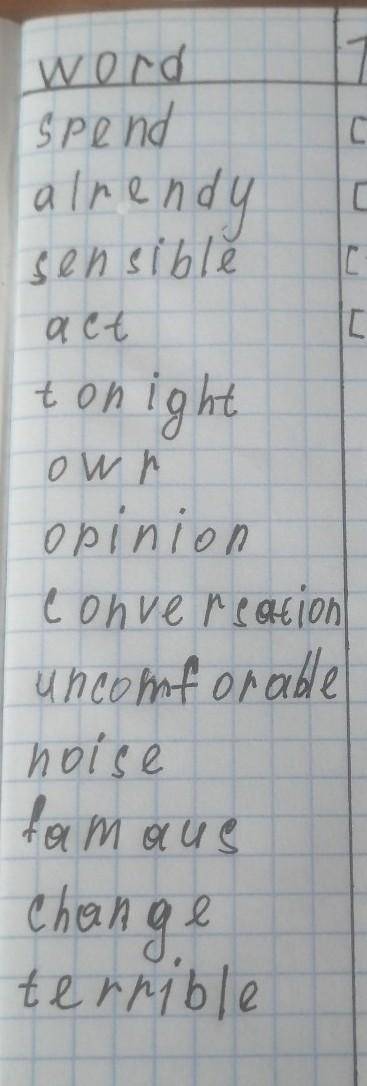 word
spend
alrendy
sensible
act
tonight
own
opinion
conversation
uncomforable
noise
famaus
change
terrible